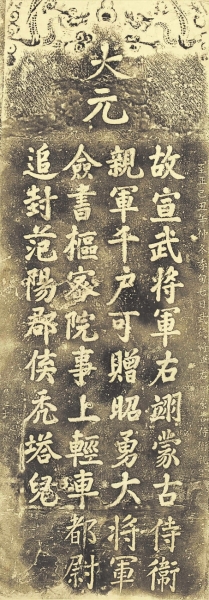 大元
故宣武将軍右翊蒙古侍衛
親軍千户可贈昭勇大将軍
僉書樞密院事上輕車都尉
追封范陽郡侯禿塔兒